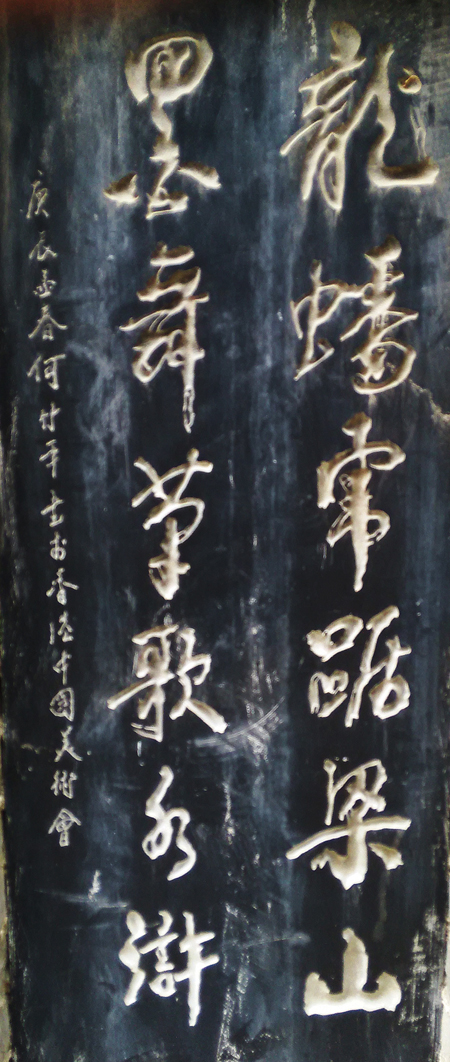 龍蟠虎踞梁山
墨舞筆歌水滸
庚辰孟春何廿平書於香港中國美術會